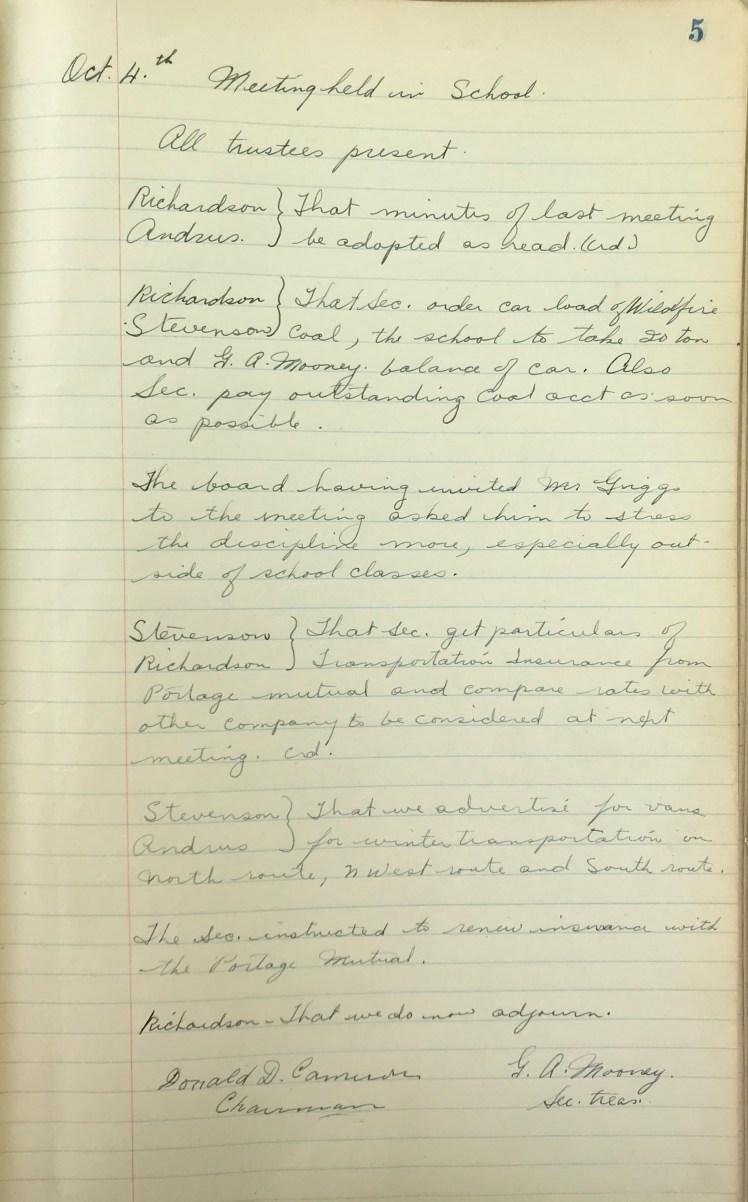 5
Oct. 4.th Meeting held in School.
All trustees present.
Richardson } That minutes of last meeting
Andrus. } be adopted as read. (crd)
Richardson } That Sec. order car load of Wildfire
Stevenson } Coal, the school to take 20 ton
and G. A. Mooney. balance of car. Also
Sec. pay outstanding Coal acct as soon
as possible.
The board having invited Mr Griggs
to the meeting asked him to stress
the discipline more, especially out-
side of school classes.
Stevenson } That Sec. get particulars of
Richardson } Transportation Insurance from
Portage mutual and compare rates with
other company to be considered at next
meeting. crd.
Stevenson } That we advertise for vans
Andrus } for winter transportation on
North route, N West route and South route.
The Sec. instructed to renew insurance with
the Portage Mutual.
Richardson - That we do now adjourn.
Donald D. Cameron G. A. Mooney.
Chairman Sec. treas.